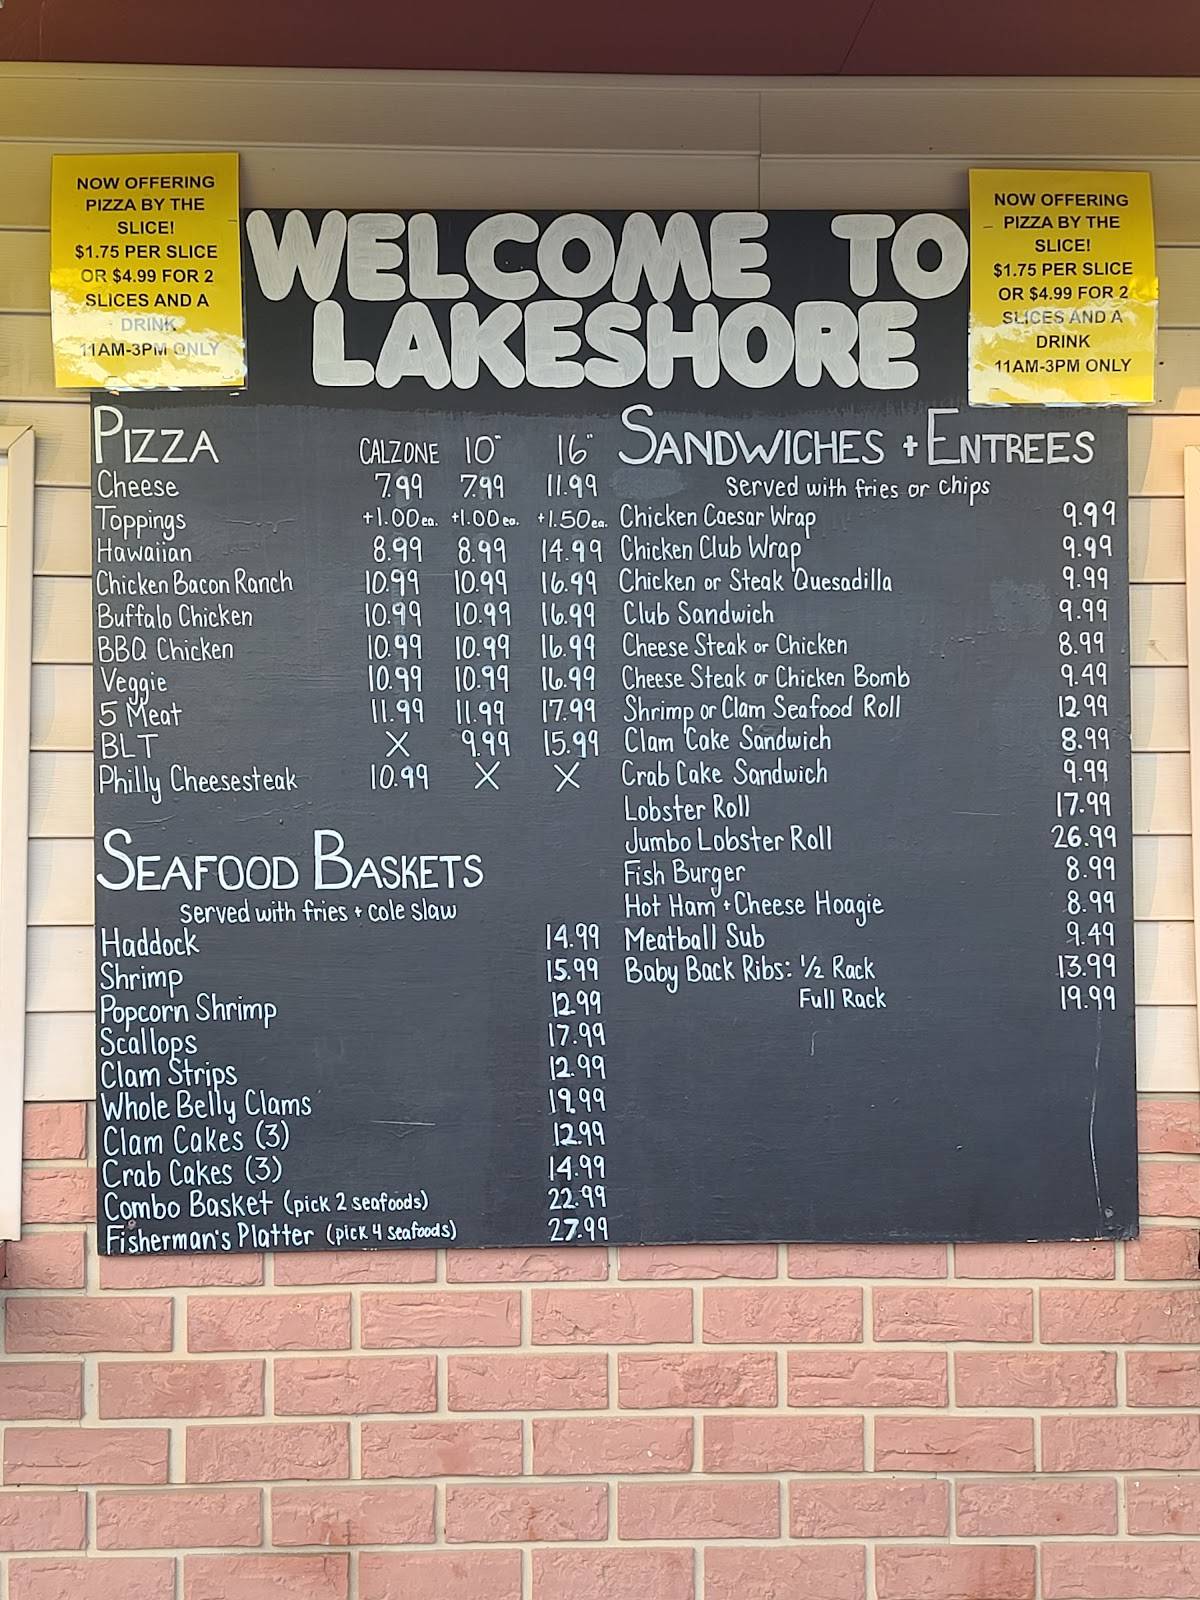 NOW OFFERING
PIZZA BY THE
SLICE!
$1.75 PER SLICE
OR $4.99 FOR 2
SLICES AND A
DRINK
11AM-3PM ONLY
WELCOME TO
LAKESHORE
NOW OFFERING
PIZZA BY THE
SLICE!
$1.75 PER SLICE
OR $4.99 FOR 2
SLICES AND A
DRINK
11AM-3PM ONLY
PIZZA CALZONE 10" 16"
Cheese 7.99 7.99 11.99
Toppings +1.00 ea. +1.00 ea. +1.50 ea.
Hawaiian 8.99 8.99 14.99
Chicken Bacon Ranch 10.99 10.99 16.99
Buffalo Chicken 10.99 10.99 16.99
BBQ Chicken 10.99 10.99 16.99
Veggie 10.99 10.99 16.99
5 Meat 11.99 11.99 17.99
BLT X 9.99 15.99
Philly Cheesesteak 10.99 X X
SEAFOOD BASKETS
Served with fries + cole slaw
Haddock 14.99
Shrimp 15.99
Popcorn Shrimp 12.99
Scallops 17.99
Clam Strips 12.99
Whole Belly Clams 19.99
Clam Cakes (3) 12.99
Crab Cakes (3) 14.99
Combo Basket (pick 2 seafoods) 22.99
Fisherman's Platter (pick 4 seafoods) 27.99
SANDWICHES + ENTREES
Served with fries or chips
Chicken Caesar Wrap 9.99
Chicken Club Wrap 9.99
Chicken or Steak Quesadilla 9.99
Club Sandwich 9.99
Cheese Steak or Chicken 8.99
Cheese Steak or Chicken Bomb 9.49
Shrimp or Clam Seafood Roll 12.99
Clam Cake Sandwich 8.99
Crab Cake Sandwich 9.99
Lobster Roll 17.99
Jumbo Lobster Roll 26.99
Fish Burger 8.99
Hot Ham + Cheese Hoagie 8.99
Meatball Sub 9.49
Baby Back Ribs: ½ Rack 13.99
Full Rack 19.99